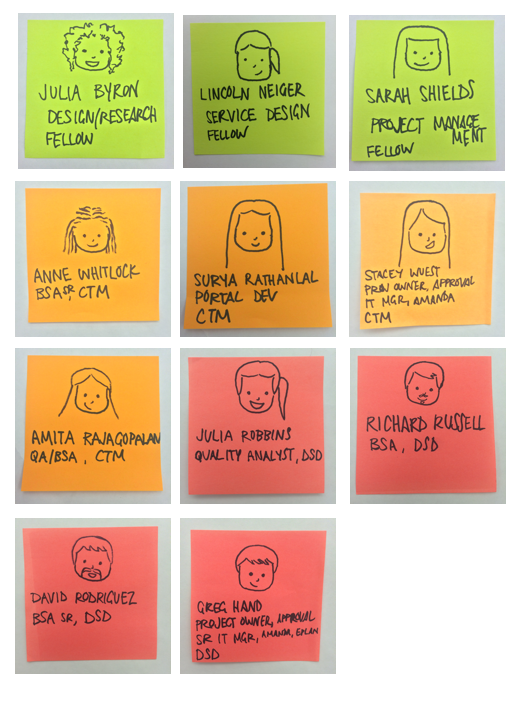 JULIA BYRON
DESIGN/RESEARCH
FELLOW
LINCOLN NEIGER
SERVICE DESIGN
FELLOW
SARAH SHIELDS
PROJECT MANAGEMENT
FELLOW
ANNE WHITLOCK
BSA SR, CTM
SURYA RATHANLAL
PORTAL DEV
CTM
STACEY WUEST
PROD OWNER, APPROVAL
IT MGR, AMANDA
CTM
AMITA RAJAGOPALAN
QA/BSA, CTM
JULIA ROBBINS
QUALITY ANALYST, DSD
RICHARD RUSSELL
BSA, DSD
DAVID RODRIGUEZ
BSA SR, DSD
GREG HAND
PROJECT OWNER, APPROVAL
SR IT MGR, AMANDA, EPLAN
DSD